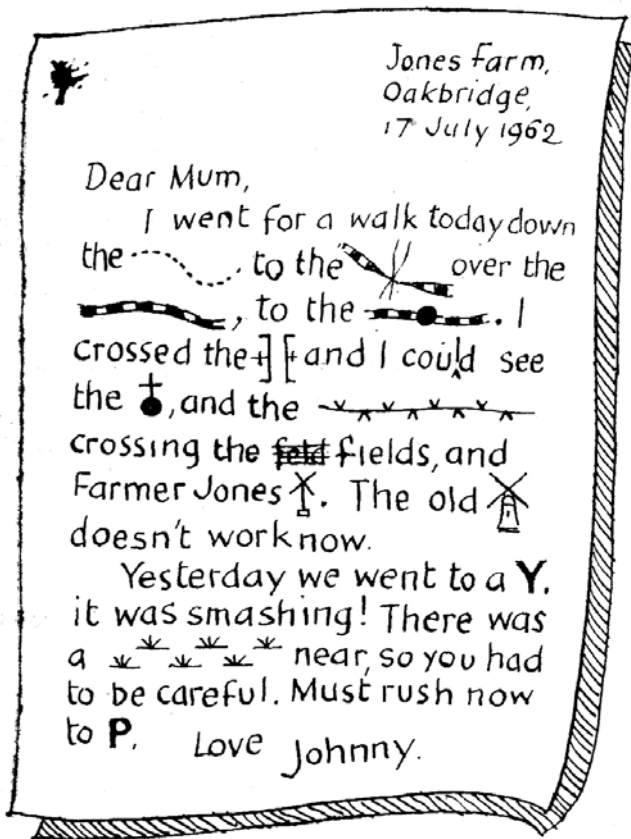 Jones Farm,
Oakbridge,
17 July 1962
Dear Mum,
I went for a walk today down
the to the over the
, to the . I
crossed the and I could see
the , and the
crossing the feld fields, and
Farmer Jones . The old
doesn't work now.
Yesterday we went to a Y.
it was smashing! There was
a near, so you had
to be careful. Must rush now
to P. Love Johnny.